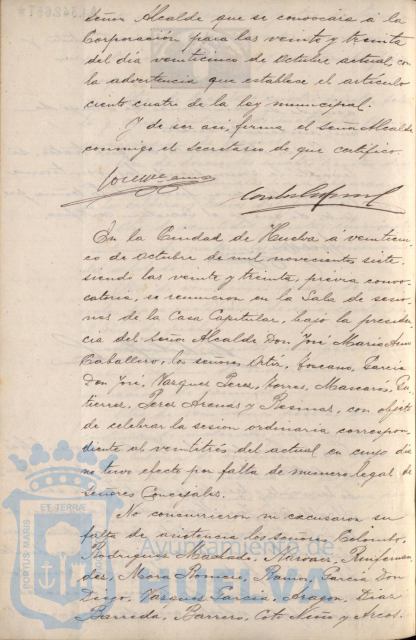 señor Alcalde que se convocara á la
Corporación para las veinte y treinta
del día veinticinco de Octubre actual, con
la advertencia que establece el artículo
ciento cuatro de la ley municipal.
Y de ser asi, firma el señor Alcalde
conmigo el Secretario de que certifico.
En la Ciudad de Huelva á veinticin-
co de Octubre de mil novecientos siete
siendo las veinte y treinta, previa convo-
catoria, se reunieron en la Sala de sesio-
nes de la Casa Capitular, bajo la presiden-
cia del Señor Alcalde Don José María
Caballero, los señores Ortiz, Toscano, García
Don José, Vazquez Perez, Torres, Mascarós, Gu-
tierrez, Perez Arenas y, con objeto
de celebrar la sesion ordinaria correspon-
diente al veintitrés del actual en cuyo dia
no tuvo efecto por falta de numero legal de
señores Concejales.
No concurrieron ni excusaron su
falta de asistencia los señores Colombo,
Rodriguez, Machado,
Mora Romero, Ramos, García Don
Diego, Vazquez García, Aragon, Diaz
Barreda, Barrero, Coto Niño y Arcos.
PORTUS MARIS
ET TERRAE
Ayuntamiento de
HUELVA